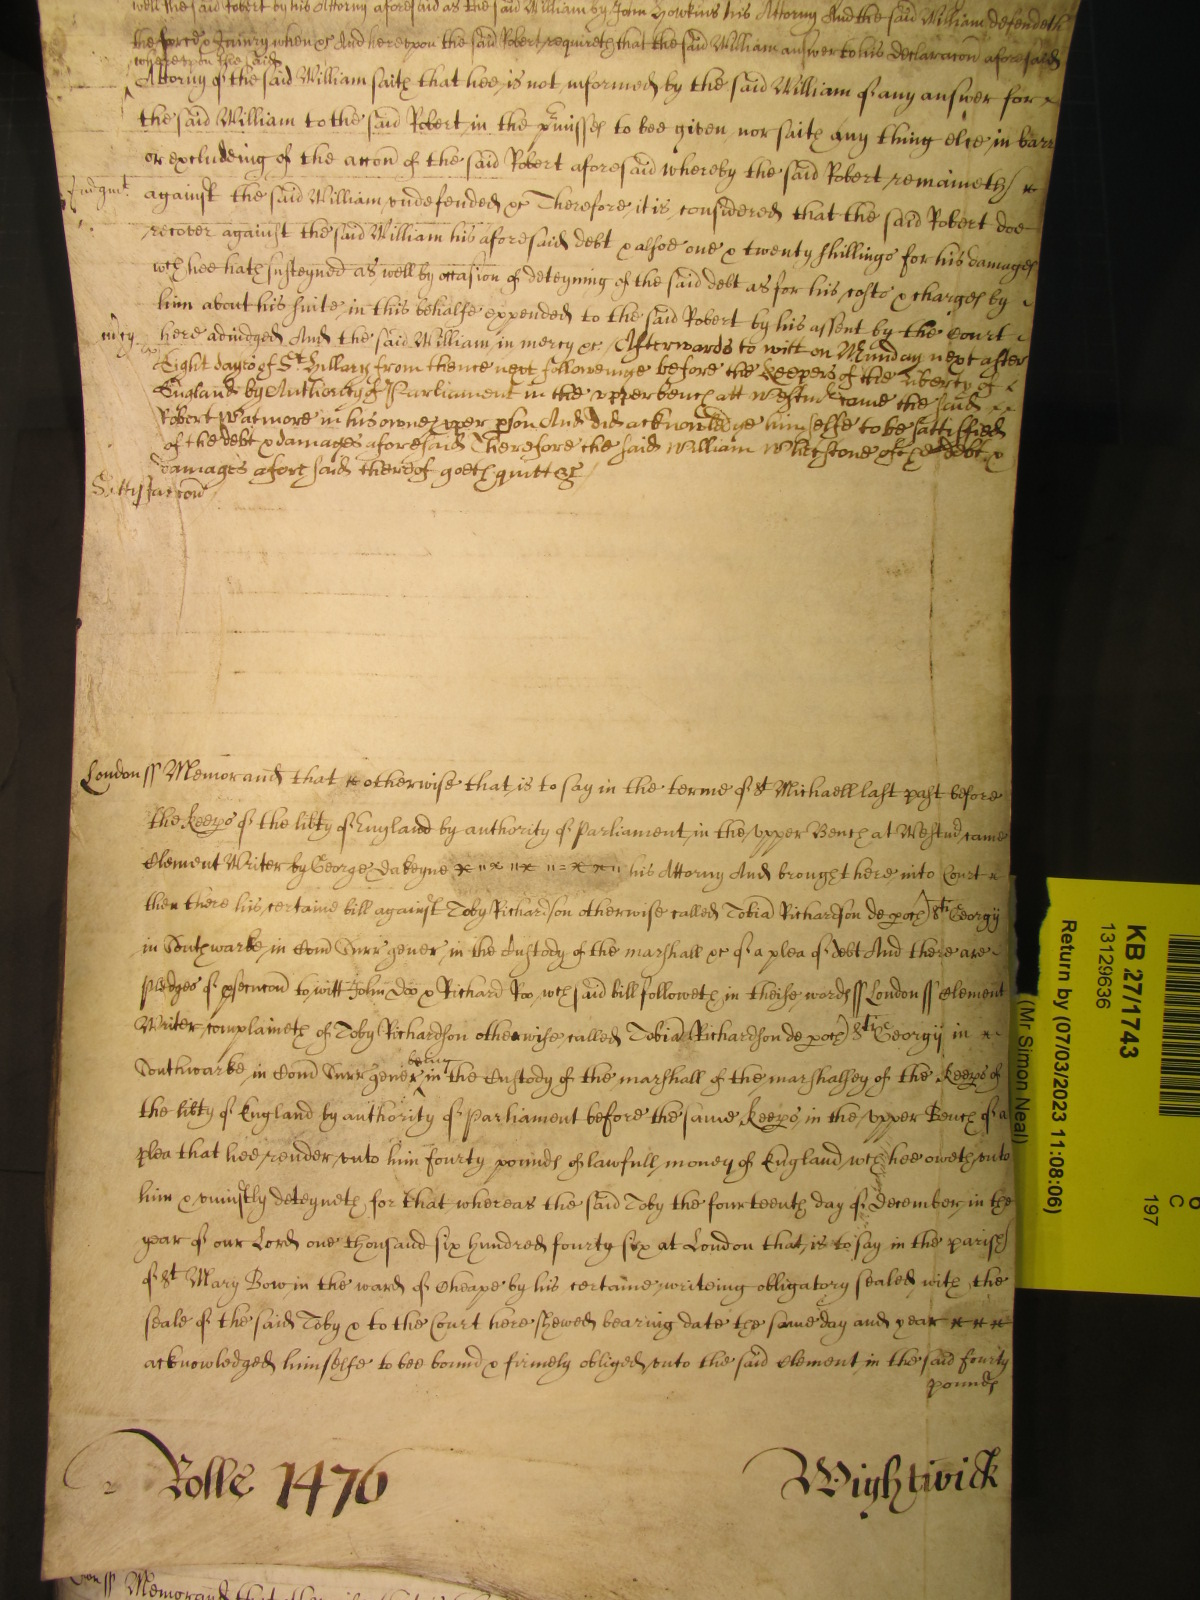 well the said Robert by his Attorny aforesaid as the said William by John Howkins his Attorny And the said William defendeth
the force & Iniury when &c And hereupon the said Robert requireth that the said William answer to his declaracon aforesaid
whereupon the said
Attorny of the said William saith that hee is not informed by the said William of any answer for
the said William to the said Robert in the pmisses to bee given nor saith any thing else in barr
or excludeing of the accon of the said Robert aforesaid whereby the said Robert remaineth
Iudgmt
against the said William undefended &c Therefore it is considered that the said Robert doe
recover against the said William his aforesaid debt & alsoe one & twenty shillings for his damages
wch hee hath susteyned as well by occasion of deteyning of the said debt as for his costs & charges by
him about his suite in this behalfe expended to the said Robert by his assent by the Court
mcy
here adiudged And the said William in mercy &c Afterwards to witt on Munday next after
Eight dayes of St Hillary from thence next followeinge before the Keepers of the Liberty of
England by Authority of Parliament in the upper bench att Westmr came the said
Robert Watmore in his owne pper pson And did acknowledge himselfe to be sattisfied
of the debt & damages aforesaid Therefore the said William Whetstone of the debt &
damages aforesaid thereof goeth quitt &c
Sattisfaccon
London ss Memorand that otherwise that is to say in the terme of St Michaell last past before
the Keeps of the libty of England by authority of Parliament in the upper Bench at Westmr came
Clement Writer by George Dakeyne his Attorny And brought here into Court
then there his certaine bill against Toby Richardson otherwise called Tobia Richardson de poch Sti Georgij
in Southwarke in Com Surr gener in the Custody of the marshall &c of a plea of debt And there are
pledges of psecucon to witt John Doo & Richard Roo wch said bill followeth in theise words ss London ss Clement
Writer complaineth of Toby Richardson otherwise called Tobia Richardson de poch Sti Georgij in
Southwarke in Com Surr gener being in the Custody of the marshall of the marshalsey of the Keeps of
the libty of England by authority of Parliament before the same Keeps in the upper Bench of a
plea that hee render unto him fourty pounds of lawfull money of England wch hee oweth unto
him & uniustly deteyneth for that whereas the said Toby the fourteenth day of December in the
year of our Lord one thousand six hundred fourty six at London that is to say in the parish
of St Mary Bow in the ward of Cheape by his certaine writeing obligatory sealed with the
seale of the said Toby & to the Court here shewed bearing date the same day and year
acknowledged himselfe to bee bound & firmely obliged unto the said Clement in the said fourty
pounds
Rolle 1476
Wightwick
ss Memorand that
KB 27/1743
13129636
(Mr Simon Neal)
Return by (07/03/2023 11:08:06)
C
197